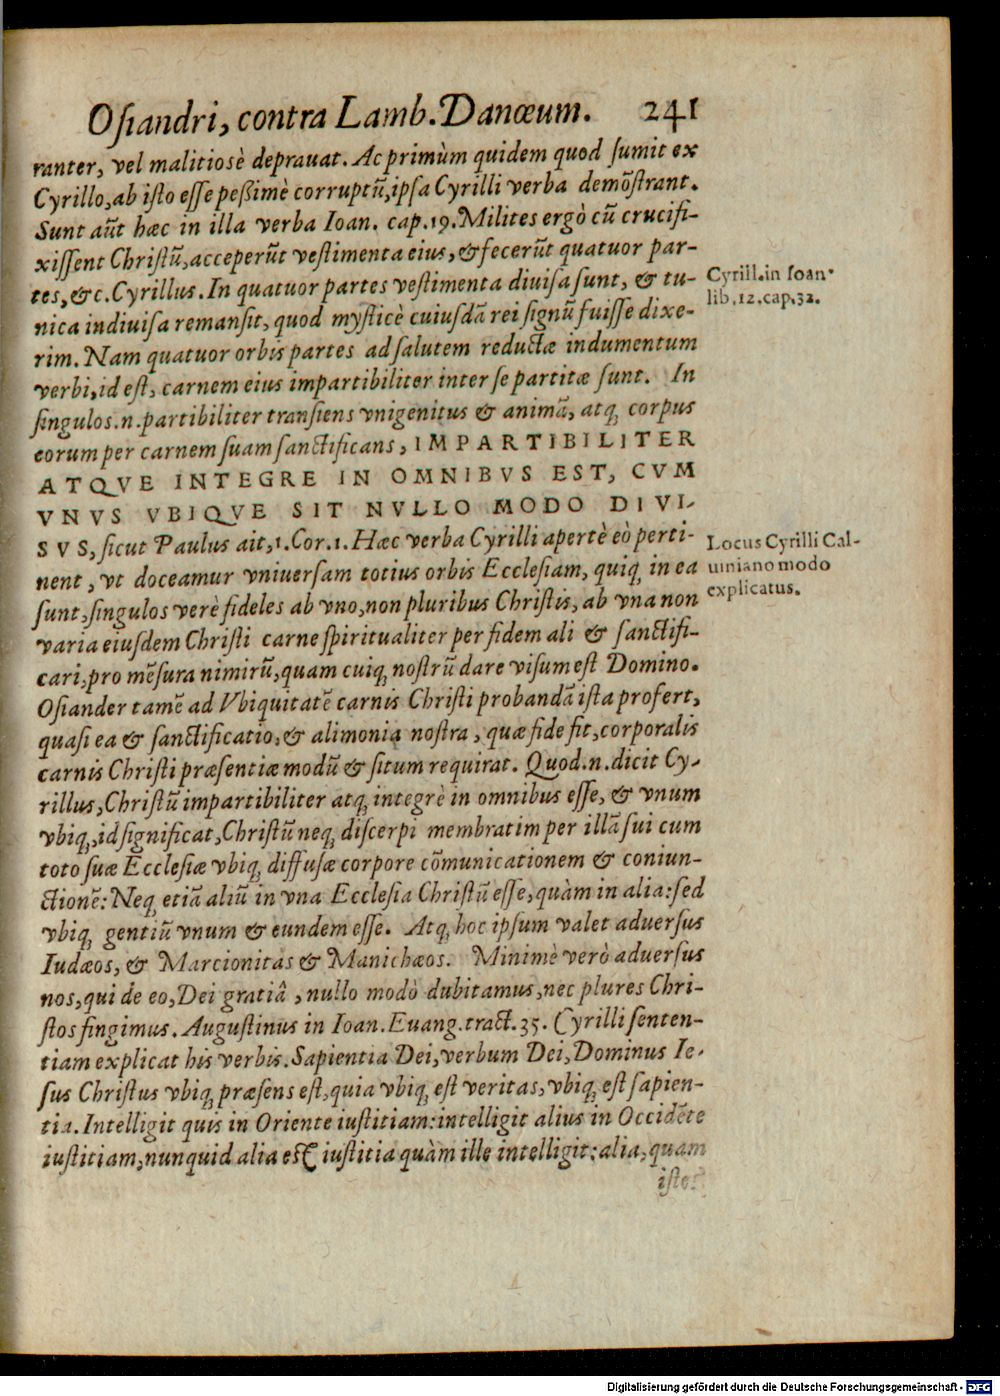 Osiandri, contra Lamb. Danœum. 241
ranter, vel malitiosè deprauat. Ac primùm quidem quod sumit ex
Cyrillo, ab isto esse peßimè corruptū, ipsa Cyrilli verba demōstrant.
Sunt aūt hæc in illa verba Ioan. cap. 19. Milites ergò cū crucifi-
xissent Christū, acceperūt vestimenta eius, & fecerūt quatuor par-
tes, &c. Cyrillus. In quatuor partes vestimenta diuisa sunt, & tu-
nica indiuisa remansit, quod mysticè cuiusdā rei signū fuisse dixe-
rim. Nam quatuor orbis partes ad salutem reductæ indumentum
verbi, id est, carnem eius impartibiliter inter se partitæ sunt. In
singulos .n. partibiliter transiens vnigenitus & animā, atq; corpus
eorum per carnem suam sanctificans, IMPARTIBILITER
ATQVE INTEGRE IN OMNIBVS EST, CVM
VNVS VBIQVE SIT NVLLO MODO DIVI-
SVS, sicut Paulus ait, 1. Cor. 1. Hæc verba Cyrilli apertè eò perti-
nent, vt doceamur vniuersam totius orbis Ecclesiam, quiq; in ea
sunt, singulos verè fideles ab vno, non pluribus Christis, ab vna non
varia eiusdem Christi carne spiritualiter per fidem ali & sanctifi-
cari, pro mēsura nimirū, quam cuiq; nostrū dare visum est Domino.
Osiander tamē ad Vbiquitatē carnis Christi probandā ista profert,
quasi ea & sanctificatio, & alimonia nostra, quæ fide fit, corporalis
carnis Christi præsentiæ modū & situm requirat. Quod .n. dicit Cy-
rillus, Christū impartibiliter atq; integrè in omnibus esse, & vnum
vbiq;, id significat, Christū neq; discerpi membratim per illā sui cum
toto suæ Ecclesiæ vbiq; diffusæ corpore cōmunicationem & coniun-
ctionē: Neq; etiā aliū in vna Ecclesia Christū esse, quàm in alia: sed
vbiq; gentiū vnum & eundem esse. Atq; hoc ipsum valet aduersus
Iudæos, & Marcionitas & Manichæos. Minimè verò aduersus
nos, qui de eo, Dei gratiâ, nullo modò dubitamus, nec plures Chri-
stos fingimus. Augustinus in Ioan. Euang. tract. 35. Cyrilli senten-
tiam explicat his verbis. Sapientia Dei, verbum Dei, Dominus Ie-
sus Christus vbiq; præsens est, quia vbiq; est veritas, vbiq; est sapien-
tia. Intelligit quis in Oriente iustitiam: intelligit alius in Occidēte
iustitiam, nunquid alia est iustitia quàm ille intelligit: alia, quam
iste?
Cyrill. in Ioan.
lib. 12. cap. 32.
Locus Cyrilli Cal-
uiniano modo
explicatus.
Digitalisierung gefördert durch die Deutsche Forschungsgemeinschaft - DFG